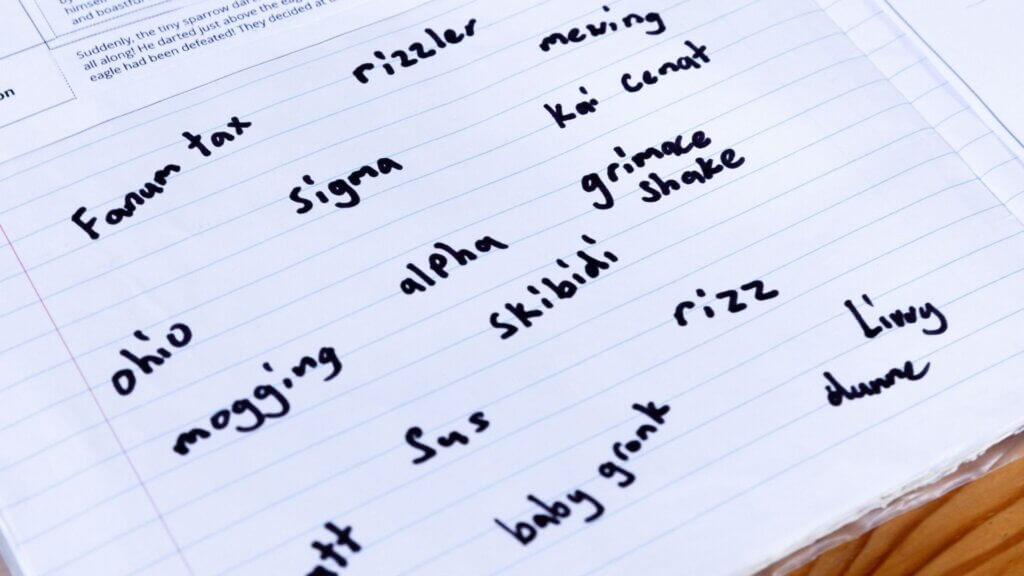 himself
and boastful
Suddenly, the tiny sparrow dar
all along! He darted just above the eag
eagle had been defeated! They decided at
on
rizzler
mewing
Kai Cenat
Fanum tax
sigma
grimace
shake
alpha
skibidi
rizz
Livvy
dunne
ohio
mogging
sus
baby gronk
att